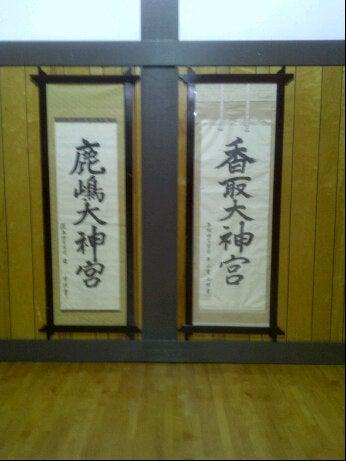 香取大神宮
鹿嶋大神宮